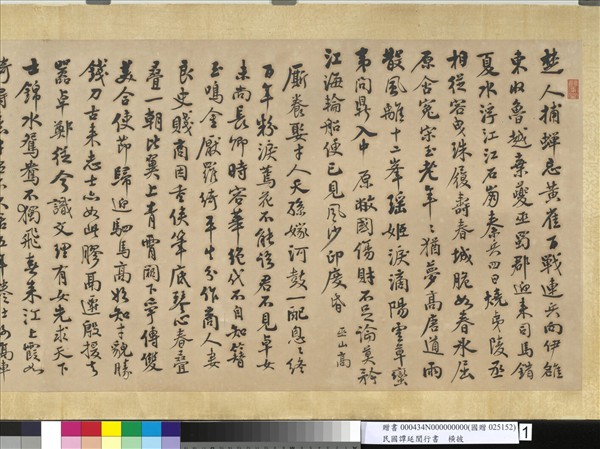 楚人捕蟬忘黃雀百戰連兵向伊雒
東收魯越棄夔巫蜀郡迎來司馬錯
夏水浮江江石崩秦兵四日燒夷陵丞
相從容曳珠履壽春城脆如春冰屈
原含冤宋玉老年〻猶夢高唐道雨
散風離十二峯瑤姬淚滴陽雲草蠻
夷問鼎入中原敝國傷財不足論莫矜
江海輪船便已見風沙印度昏 巫山高
厮養娶才人天孫嫁河鼓一配忽〻終
百年粉淚蔫花不能語君不見卓女
未尚長卿時容華絕代不自知簪
玉鳴金厭羅綺平生分作商人妻
良史賤商因重俠筆底琴心春疊
疊一朝比翼上青霄闕下爭傳雙
美合使節歸迎駟馬高始知才貌勝
錢刀古來志士亦如此膠鬲遷殷援去
器卓鄭從今識文理有女先求天下
士錦水鴛鴦不獨飛春來江上霞如
贈書 000434N000000000(國贈 025152)
民國譚延闓行書 橫披
1